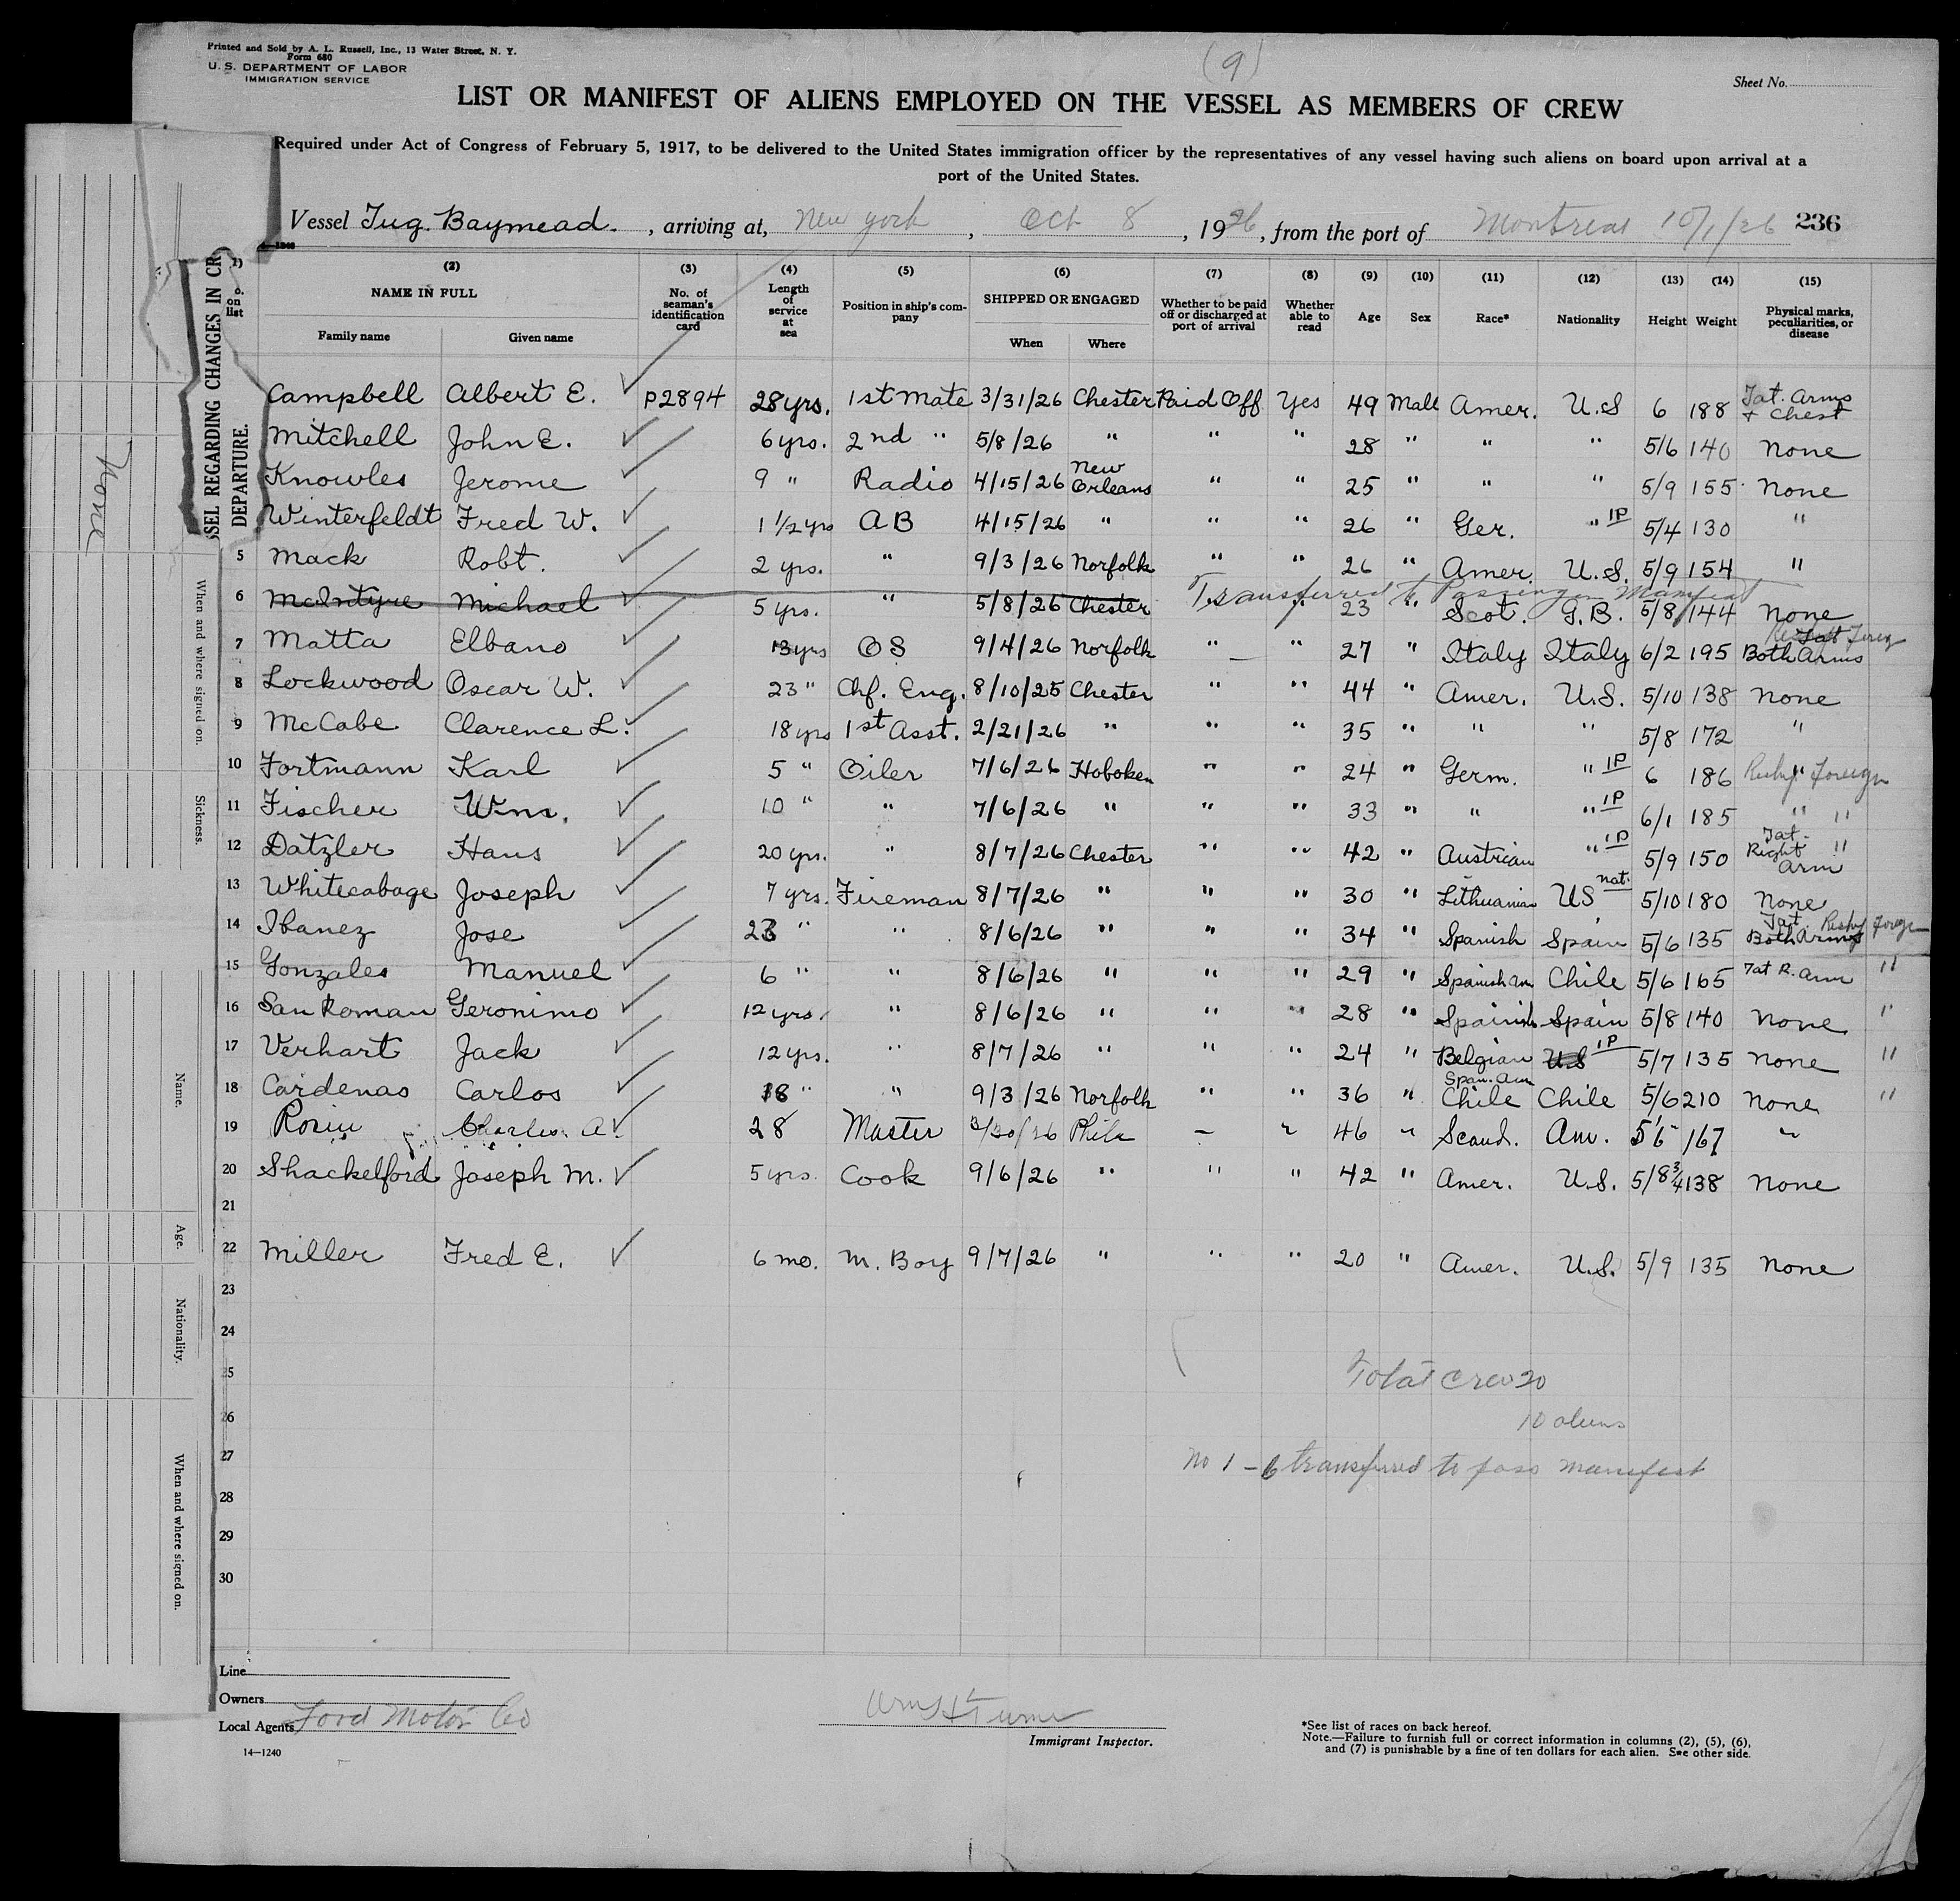 Printed and Sold by A. L. Russell, Inc., 13 Water Street, N. Y.
Form 680
U. S. DEPARTMENT OF LABOR
IMMIGRATION SERVICE
(9)
Sheet No.
LIST OR MANIFEST OF ALIENS EMPLOYED ON THE VESSEL AS MEMBERS OF CREW
Required under Act of Congress of February 5, 1917, to be delivered to the United States immigration officer by the representatives of any vessel having such aliens on board upon arrival at a
port of the United States.
Vessel Tug. Baymead. , arriving at, New York , Oct 8 , 1926, from the port of Montreal 10/1/26 236
(1) (2) (3) (4) (5) (6) (7) (8) (9) (10) (11) (12) (13) (14) (15)
o. on list NAME IN FULL Family name Given name No. of seaman's identification card Length of service at sea Position in ship's company SHIPPED OR ENGAGED When Where Whether to be paid off or discharged at port of arrival Whether able to read Age Sex Race* Nationality Height Weight Physical marks, peculiarities, or disease
Campbell Albert E. ✓ P2894 28 yrs. 1st Mate 3/31/26 Chester Paid Off Yes 49 Male Amer. U.S 6 188 Tat. Arms + Chest
Mitchell John E. ✓ 6 yrs. 2nd " 5/8/26 " " " 28 " " " 5/6 140 None
Knowles Jerome ✓ 9 " Radio 4/15/26 New Orleans " " 25 " " " 5/9 155 None
Winterfeldt Fred W. ✓ 1 1/2 yrs AB 4/15/26 " " " 26 " Ger. " 1P 5/4 130 "
5 Mack Robt. ✓ 2 yrs. " 9/3/26 Norfolk " " 26 " Amer. U.S. 5/9 154 "
6 McIntyre Michael ✓ 5 yrs. " 5/8/26 Chester Transferred to Passenger Manifest " 23 " Scot. G.B. 5/8 144 None
7 Matta Elbano ✓ 13 yrs OS 9/4/26 Norfolk " " 27 " Italy Italy 6/2 195 Tat Both Arms
8 Lockwood Oscar W. ✓ 23 " Chf. Eng. 8/10/25 Chester " " 44 " Amer. U.S. 5/10 138 None
9 McCabe Clarence L. ✓ 18 yrs 1st Asst. 2/21/26 " " " 35 " " " 5/8 172 "
10 Fortmann Karl ✓ 5 " Oiler 7/6/26 Hoboken " " 24 " Germ. " 1P 6 186 " Reshp Foreign
11 Fischer Wm. ✓ 10 " " 7/6/26 " " " 33 " " " 1P 6/1 185 " "
12 Datzler Hans ✓ 20 yrs. " 8/7/26 Chester " " 42 " Austrian " 1P 5/9 150 Tat. Right Arm "
13 Whitecabage Joseph ✓ 7 yrs. Fireman 8/7/26 " " " 30 " Lithuanian US nat. 5/10 180 None
14 Ibanez Jose ✓ 23 " " 8/6/26 " " " 34 " Spanish Spain 5/6 135 Tat. Both Arms Reshp Foreign
15 Gonzales Manuel ✓ 6 " " 8/6/26 " " " 29 " Spanish Am Chile 5/6 165 Tat R. Arm "
16 San Roman Geronimo ✓ 12 yrs. " 8/6/26 " " " 28 " Spanish Spain 5/8 140 None "
17 Verhart Jack ✓ 12 yrs. " 8/7/26 " " " 24 " Belgian U.S 1P 5/7 135 None "
18 Cardenas Carlos ✓ 18 " " 9/3/26 Norfolk " " 36 " Span. Am Chile Chile 5/6 210 None "
19 Charles A. ✓ 28 Master 3/30/26 Phila " " 46 " Scand. Am. 5'6" 167 "
20 Shackelford Joseph M. ✓ 5 yrs. Cook 9/6/26 " " " 42 " Amer. U.S. 5/8 3/4 138 None
21
22 Miller Fred E. ✓ 6 mo. M. Boy 9/7/26 " " " 20 " Amer. U.S. 5/9 135 None
23
24
25
Total crew 20
26
10 aliens
27
No 1 - 6 transferred to pass manifest
28
29
30
Line
Owners
Local Agents Ford Motor Co
Immigrant Inspector.
14—1240
*See list of races on back hereof.
Note.—Failure to furnish full or correct information in columns (2), (5), (6),
and (7) is punishable by a fine of ten dollars for each alien. See other side.
SSEL REGARDING CHANGES IN CR
DEPARTURE.
None
When and where signed on.
Sickness.
Name.
Age.
Nationality.
When and where signed on.